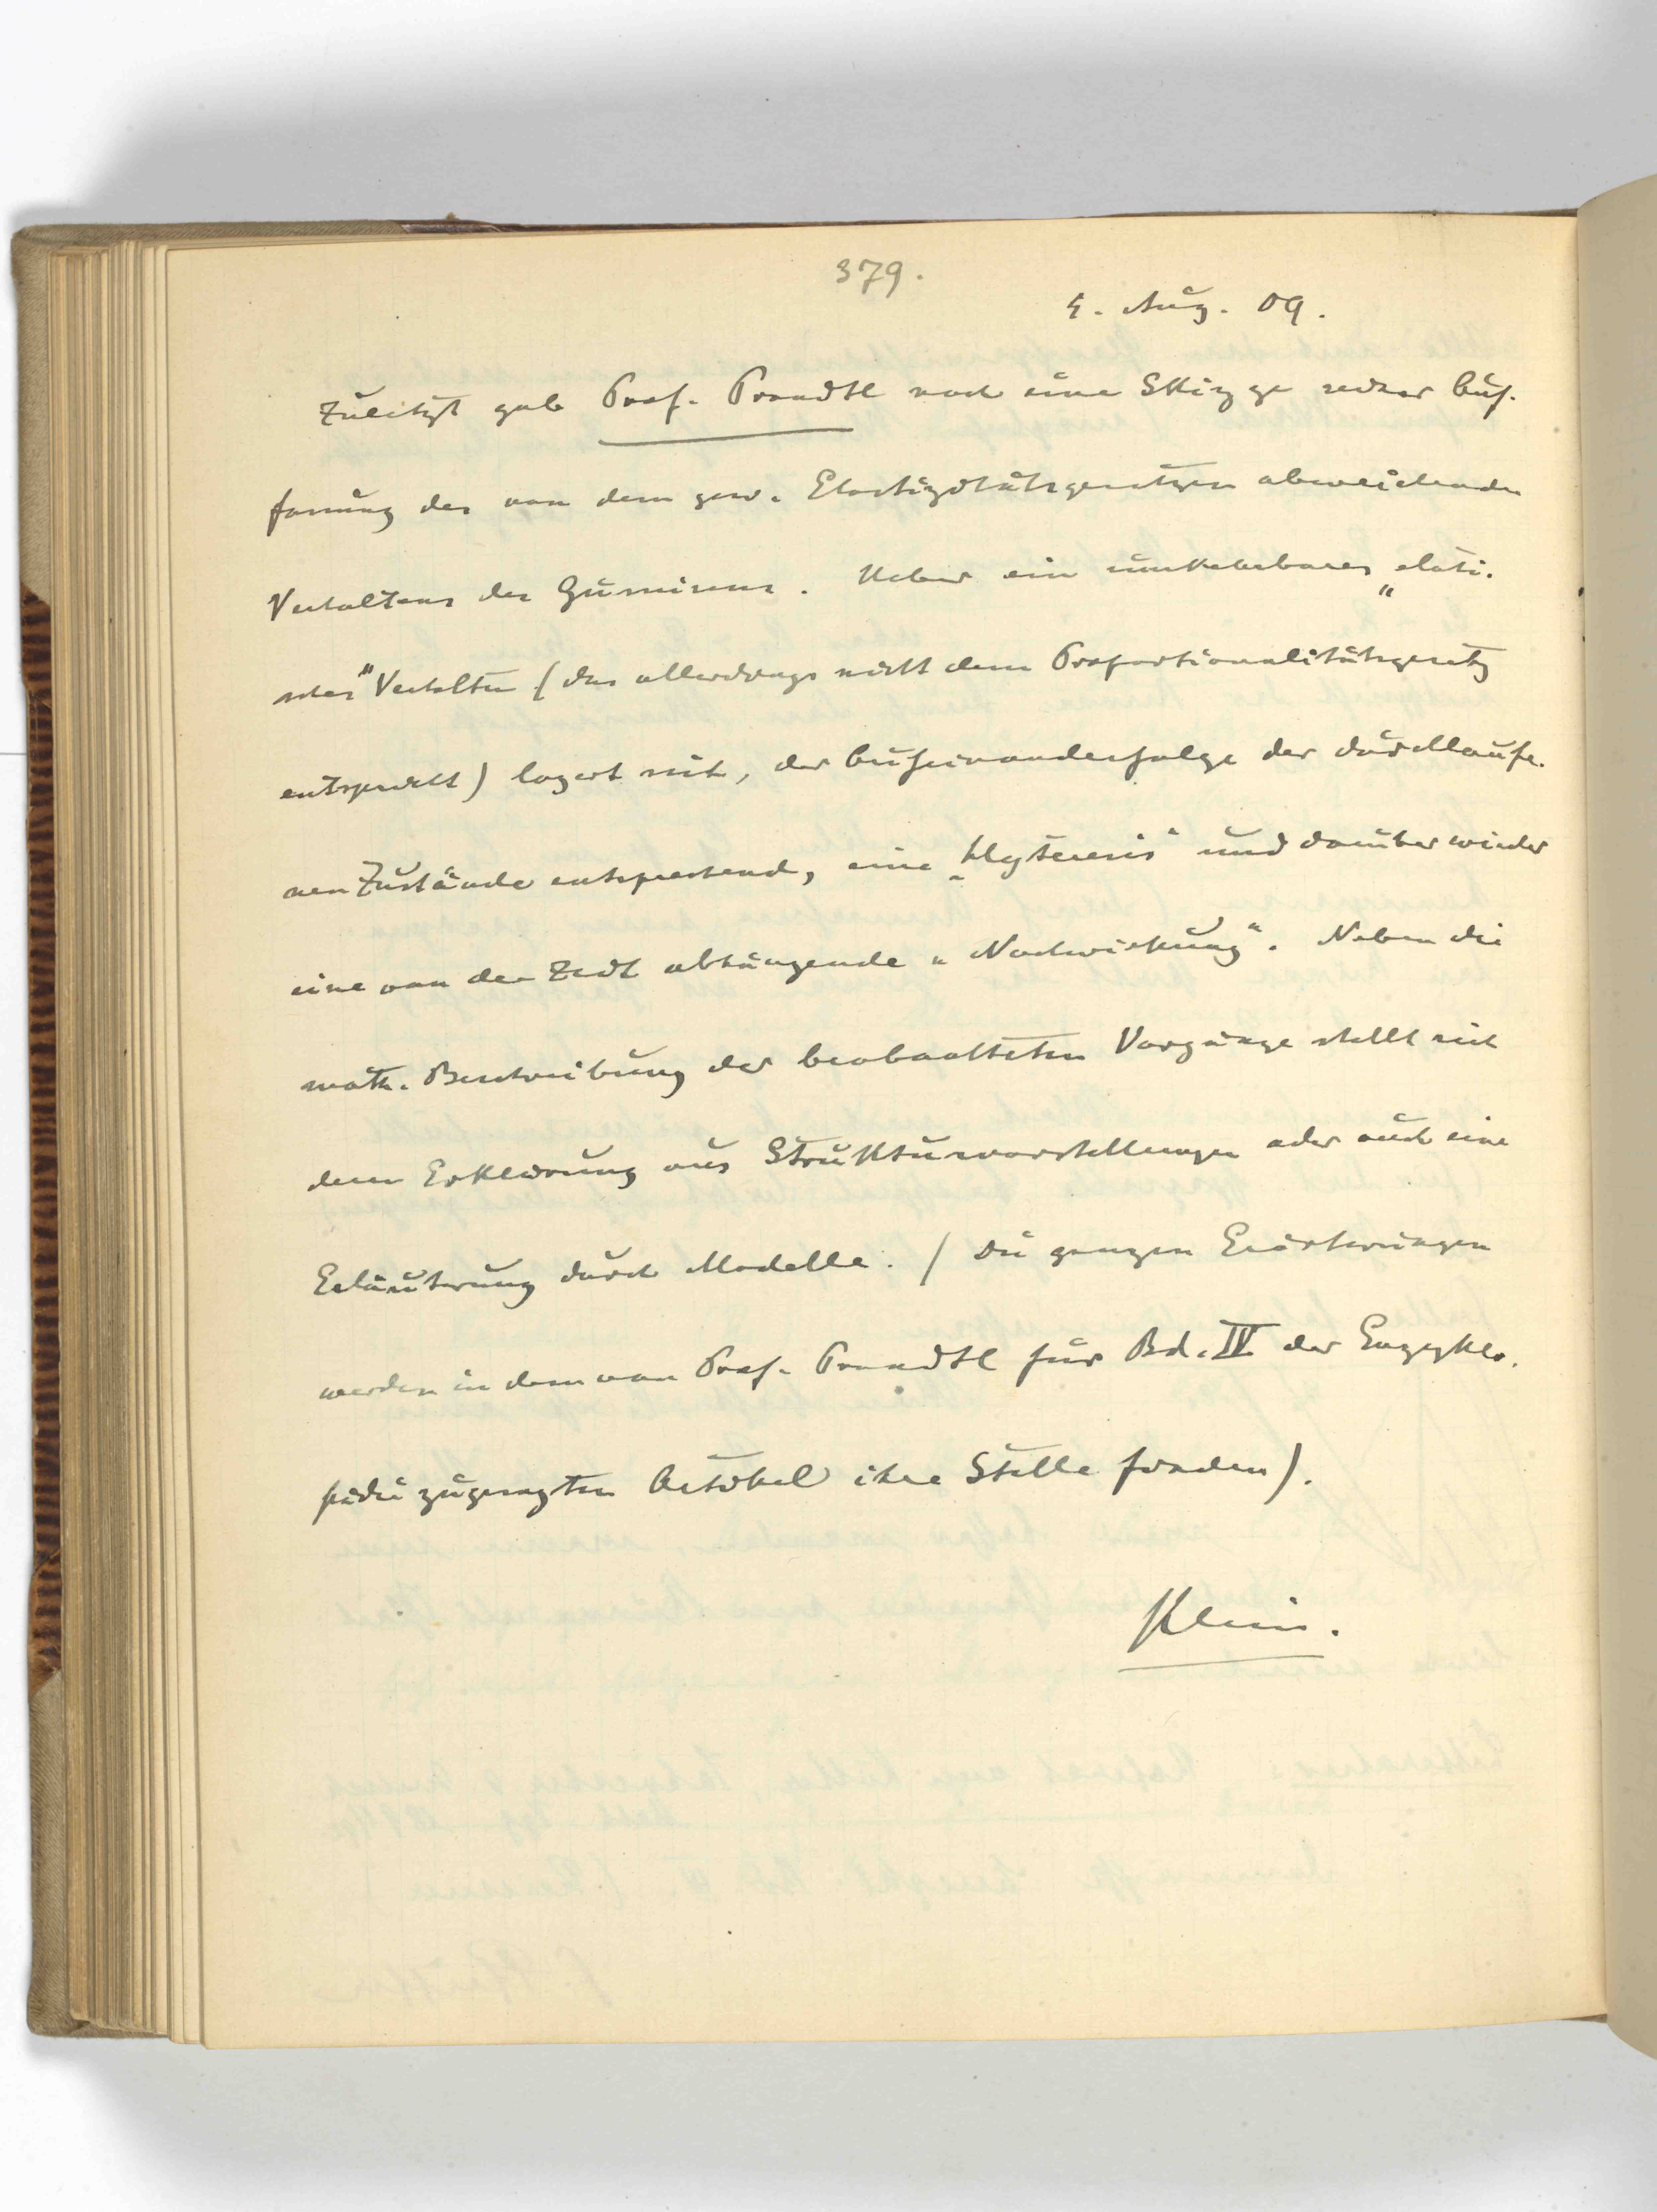 379.
4. Aug. 09.
Zuletzt gab Prof. Prandtl noch eine Skizze seiner Auf-
fassung des von dem gew. Elastizitätsgesetzen abweichenden
Verhaltens des Gummis. Ueber ein umkehrbares „elasti-
sches" Verhalten (das allerdings nicht dem Proportionalitätsgesetz
entspricht) lagert sich, der Aufeinanderfolge der durchlaufe-
nen Zustände entsprechend, eine „Hysteresis" und darüber wieder
eine von der Zeit abhängende „Nachwirkung". Neben die
math. Beschreibung der beobachteten Vorgänge stellt sich
dem Erklärung aus Strukturvorstellungen oder auch eine
Erläuterung durch Modelle. (Die ganzen Erörterungen
werden in dem von Prof. Prandtl für Bd. IV der Enzyklo-
pädie zugesagten Artikel ihre Stelle finden).
Klein.